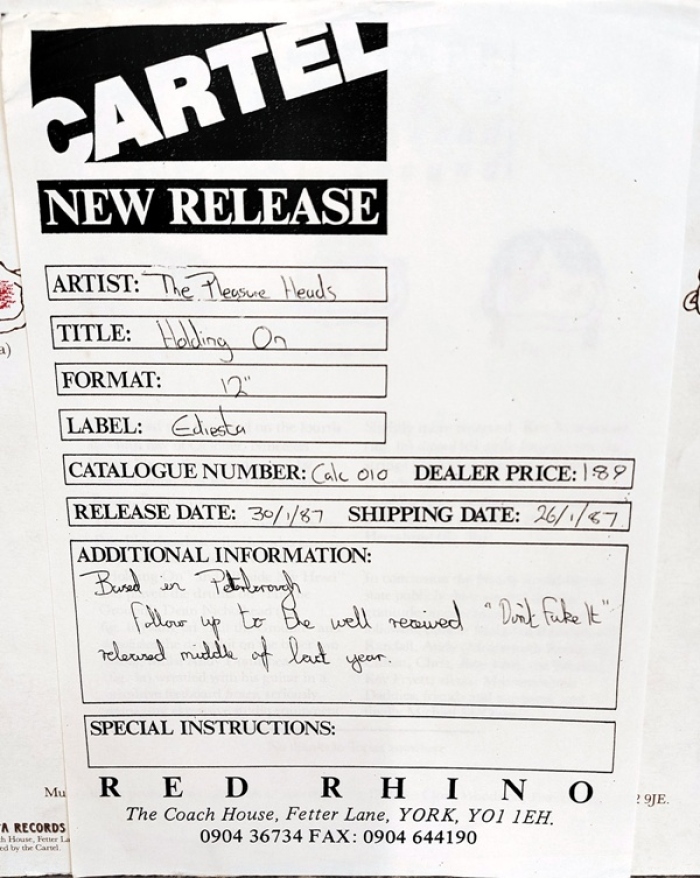 CARTEL
NEW RELEASE
ARTIST: The Pleasure Heads
TITLE: Holding On
FORMAT: 12"
LABEL: Ediesta
CATALOGUE NUMBER: Calc 010 DEALER PRICE: 1.89
RELEASE DATE: 30/1/87 SHIPPING DATE: 26/1/87
ADDITIONAL INFORMATION:
Based in Peterborough
Follow up to the well received "Don't Fake It"
released middle of last year.
SPECIAL INSTRUCTIONS:
RED RHINO
The Coach House, Fetter Lane, YORK, YO1 1EH.
0904 36734 FAX: 0904 644190
a)
Mu
9JE.
A RECORDS
h House, Fetter La
ed by the Cartel.